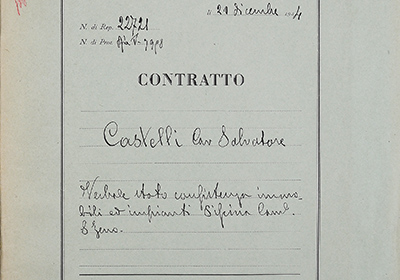 lì 21 Dicembre 1914
N. di Rep. 22721
N. di Proc. 7998
CONTRATTO
Castelli Cav Salvatore
Verbale stato consistenza immo-
bili ed impianti Officina Comb.
S Zeno.